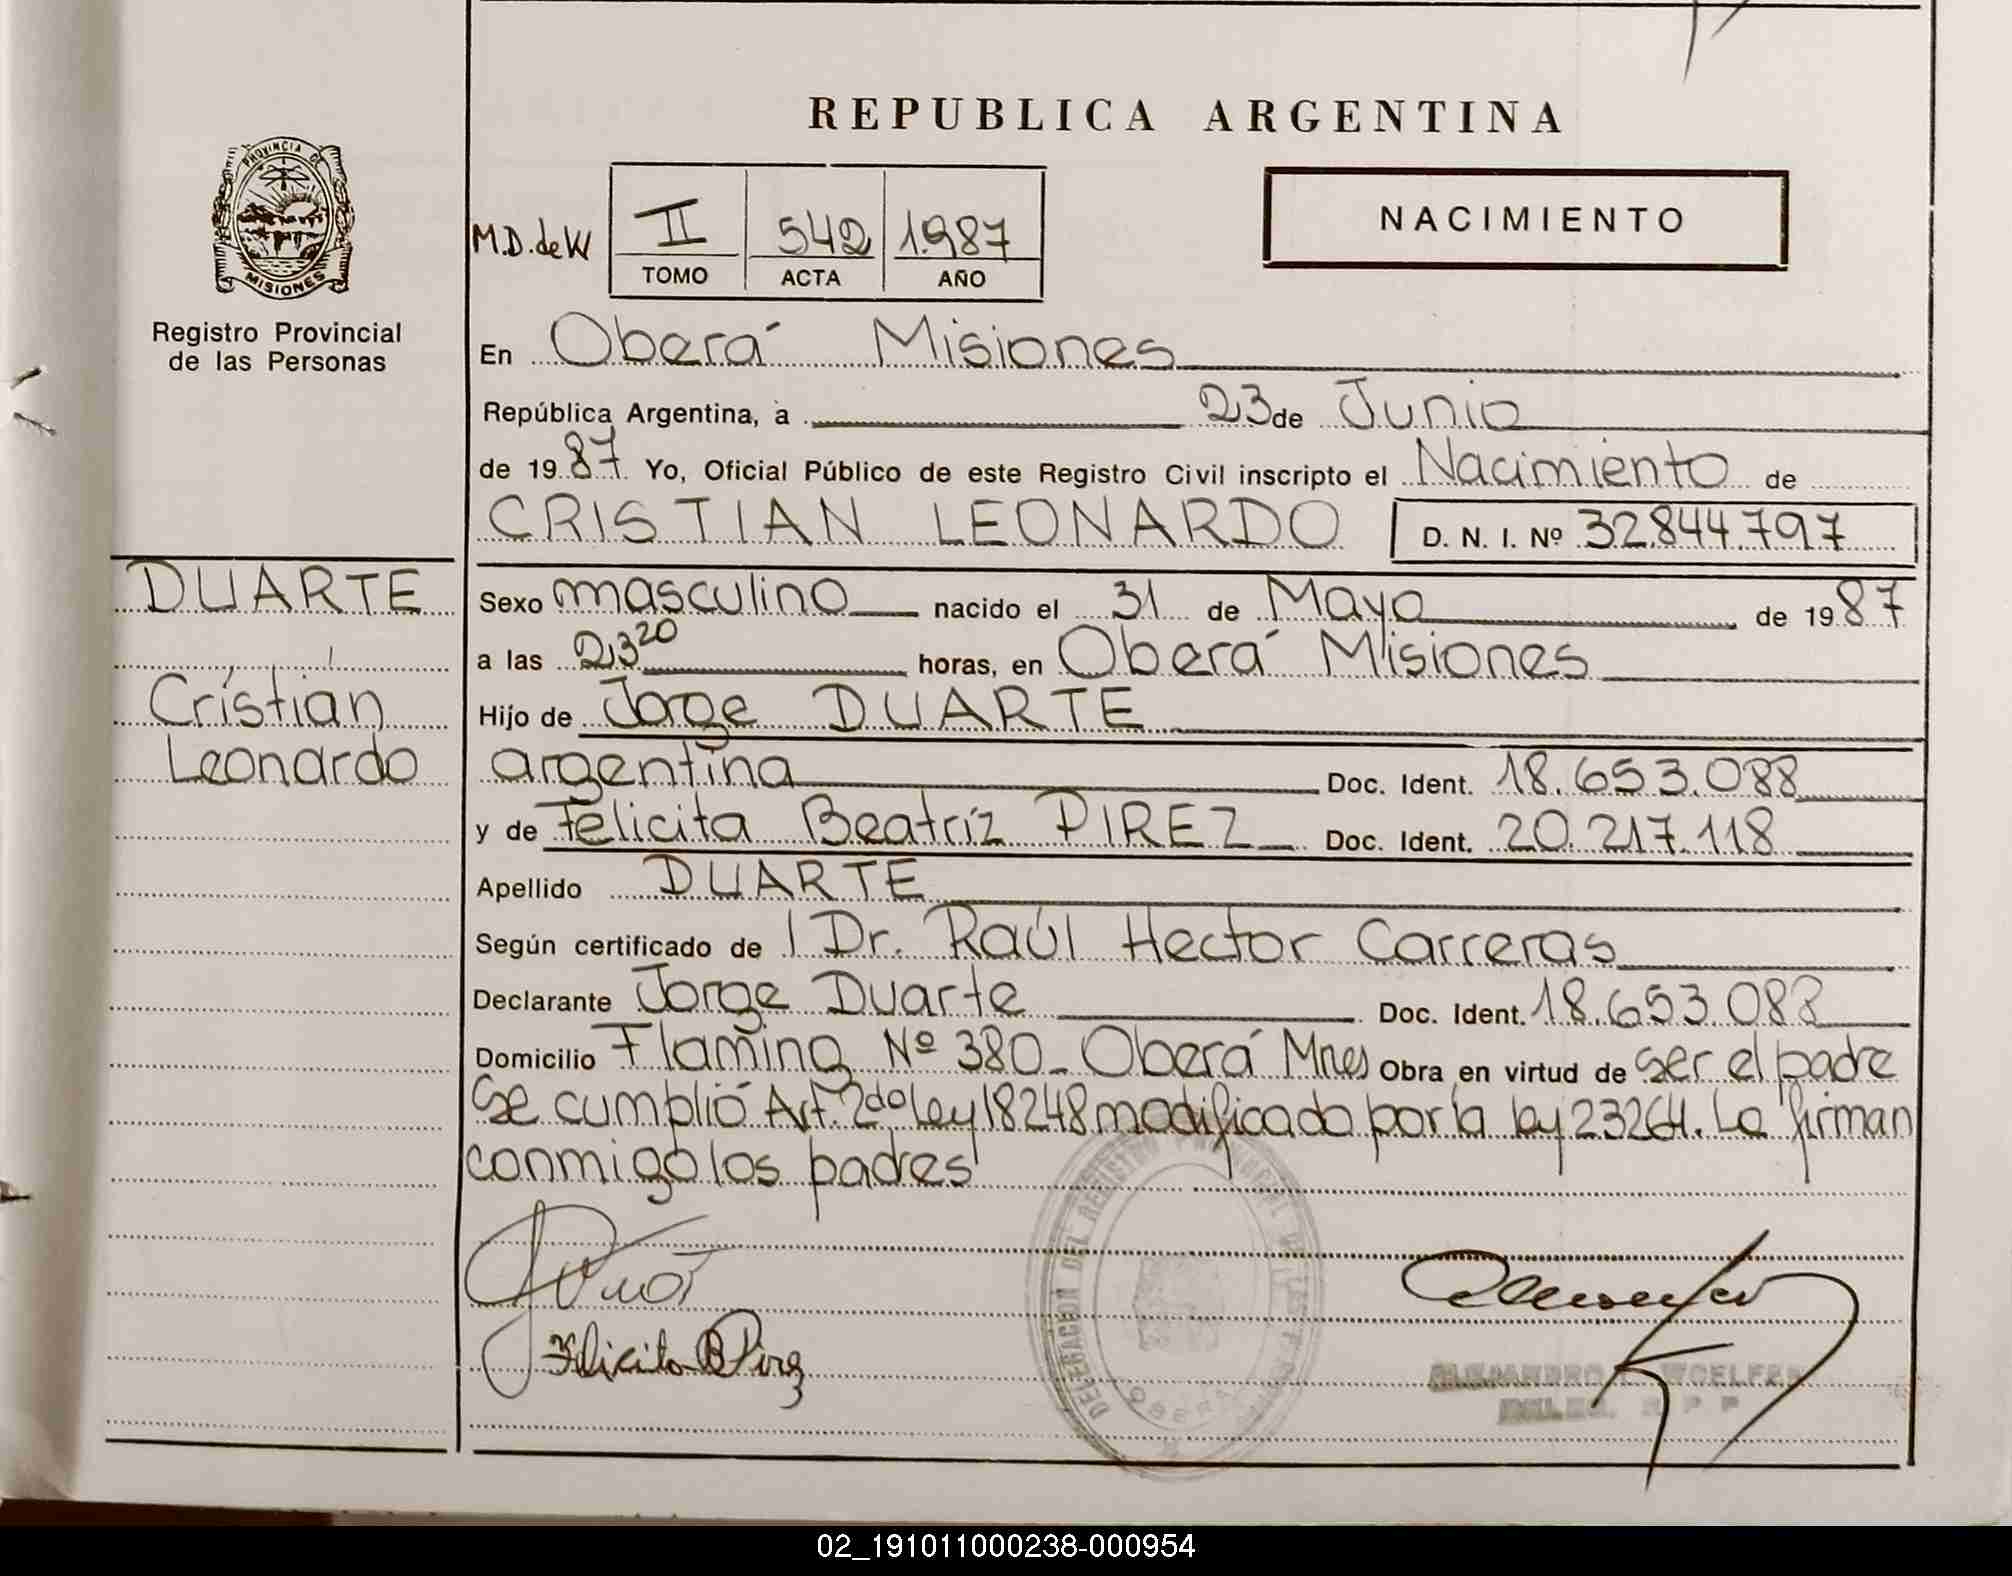 REPUBLICA ARGENTINA
PROVINCIA DE
MISIONES
Registro Provincial
de las Personas
M.D. de W
II 542 1.987
TOMO ACTA AÑO
NACIMIENTO
En Oberá Misiones
República Argentina, a 23 de Junio
de 19 87 Yo, Oficial Público de este Registro Civil inscripto el Nacimiento de
CRISTIAN LEONARDO D. N. I. Nº 32.844.797
DUARTE
Cristian
Leonardo
Sexo masculino nacido el 31 de Mayo de 19 87
a las 23 20 horas, en Oberá Misiones
Hijo de Jorge DUARTE
argentina Doc. Ident. 18.653.088
y de Felicita Beatríz PIREZ Doc. Ident. 20.217.118
Apellido DUARTE
Según certificado de Dr. Raúl Hector Carreras
Declarante Jorge Duarte Doc. Ident. 18.653.088
Domicilio Flaming Nº 380 - Oberá Mnes Obra en virtud de ser el padre
Se cumplió Art. 2do Ley 18248 modificado por la ley 23264. La firman
conmigo los padres
Felicita B Pirez
DELEGACION DEL REGISTRO PROVINCIAL DE LAS
OBERA
02_191011000238-000954